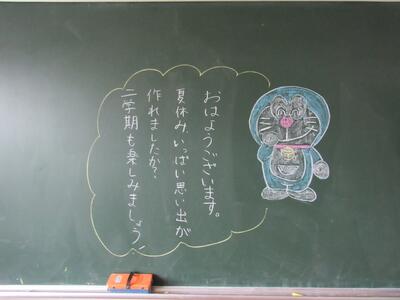 おはようございます。
夏休み、いっぱい思い出が
作れましたか?
二学期も楽しみましょう!